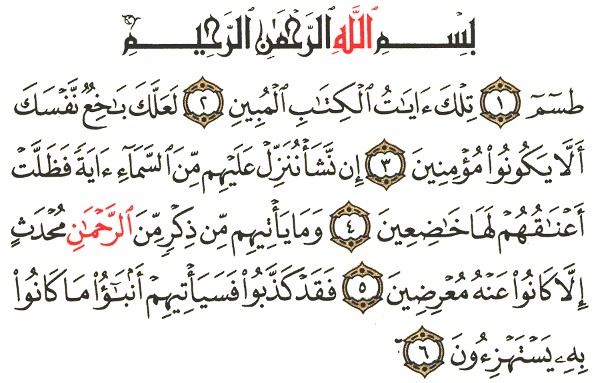 بِسْمِ ٱللَّهِ ٱلرَّحْمَٰنِ ٱلرَّحِيمِ
طسٓمٓ ١ تِلْكَ ءَايَٰتُ ٱلْكِتَٰبِ ٱلْمُبِينِ ٢ لَعَلَّكَ بَٰخِعٌ نَّفْسَكَ
أَلَّا يَكُونُوا۟ مُؤْمِنِينَ ٣ إِن نَّشَأْ نُنَزِّلْ عَلَيْهِم مِّنَ ٱلسَّمَآءِ ءَايَةً فَظَلَّتْ
أَعْنَٰقُهُمْ لَهَا خَٰضِعِينَ ٤ وَمَا يَأْتِيهِم مِّن ذِكْرٍ مِّنَ ٱلرَّحْمَٰنِ مُحْدَثٍ
إِلَّا كَانُوا۟ عَنْهُ مُعْرِضِينَ ٥ فَقَدْ كَذَّبُوا۟ فَسَيَأْتِيهِمْ أَنۢبَٰٓؤُا۟ مَا كَانُوا۟
بِهِۦ يَسْتَهْزِءُونَ ٦